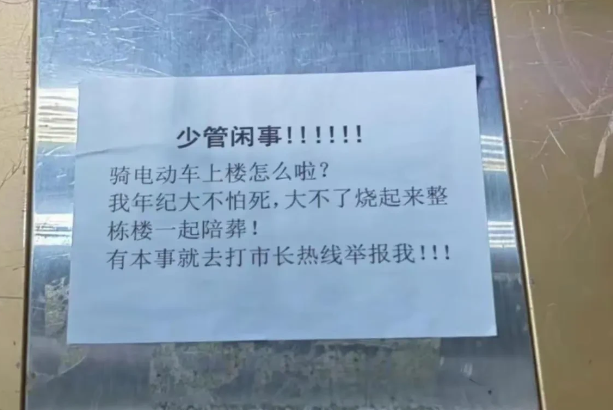 少管闲事!!!!!!
骑电动车上楼怎么啦?
我年纪大不怕死,大不了烧起来整
栋楼一起陪葬!
有本事就去打市长热线举报我!!!